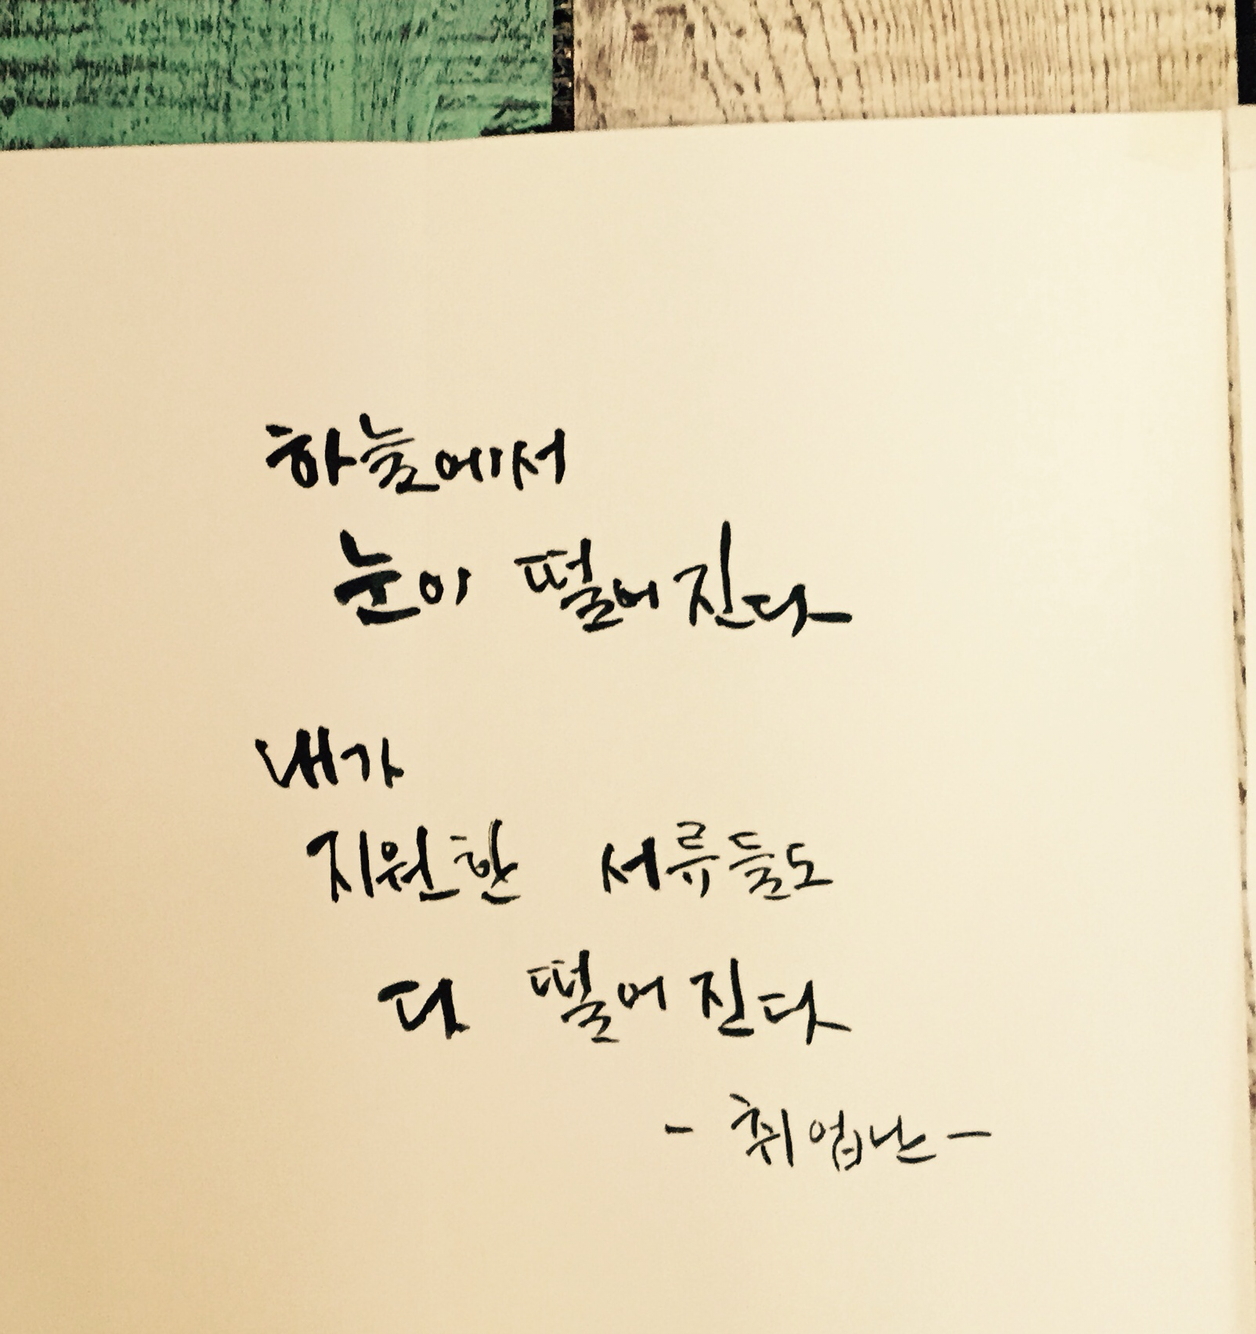 하늘에서
눈이 떨어진다
내가
지원한 서류들도
다 떨어진다
- 취업난 -